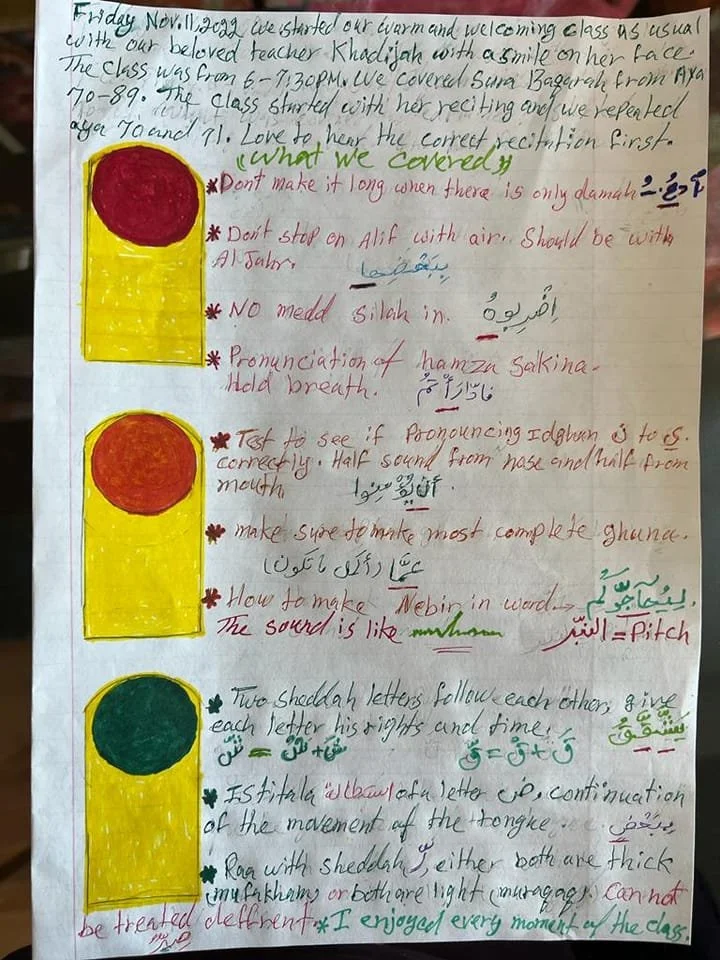 Friday Nov. 11, 2022 we started our warm and welcoming class as usual
with our beloved teacher Khadijah with a smile on her face.
The class was from 6-7:30PM. We covered Sura Baqarah from Aya
70-89. The class started with her reciting and we repeated
aya 70 and 71. Love to hear the correct recitation first.
«What we covered»
* Don't make it long when there is only damah
* Don't stop on Alif with air. Should be with
Al Jahr. بِبَعْضِهَا
* NO medd silah in. اضْرِبُوهُ
* Pronunciation of hamza sakina.
Hold breath. فَادَّارَأْتُمْ
* Test to see if Pronouncing Idghum ن to ي.
correctly. Half sound from nose and half from
mouth أَن يُؤْمِنُوا.
* make sure to make most complete ghuna.
عَمَّا (أكمل ما تكون)
* How to make Nebir in word. → لِيُحَآجُّوكُم.
The sound is like النبر = Pitch
* Two sheddah letters follow each other, give
each letter his rights and time. يَشَّقَّقُ
شْ + شَ = شَّ قْ + قَ = قَّ
* Istitala استطالة of a letter ض, continuation
of the movement of the tongue. بِبَعْضِ
* Raa with sheddah رّ, either both are thick
(mufakham) or both are light (muraqaq). Can not
be treated defferent. * I enjoyed every moment of the class.